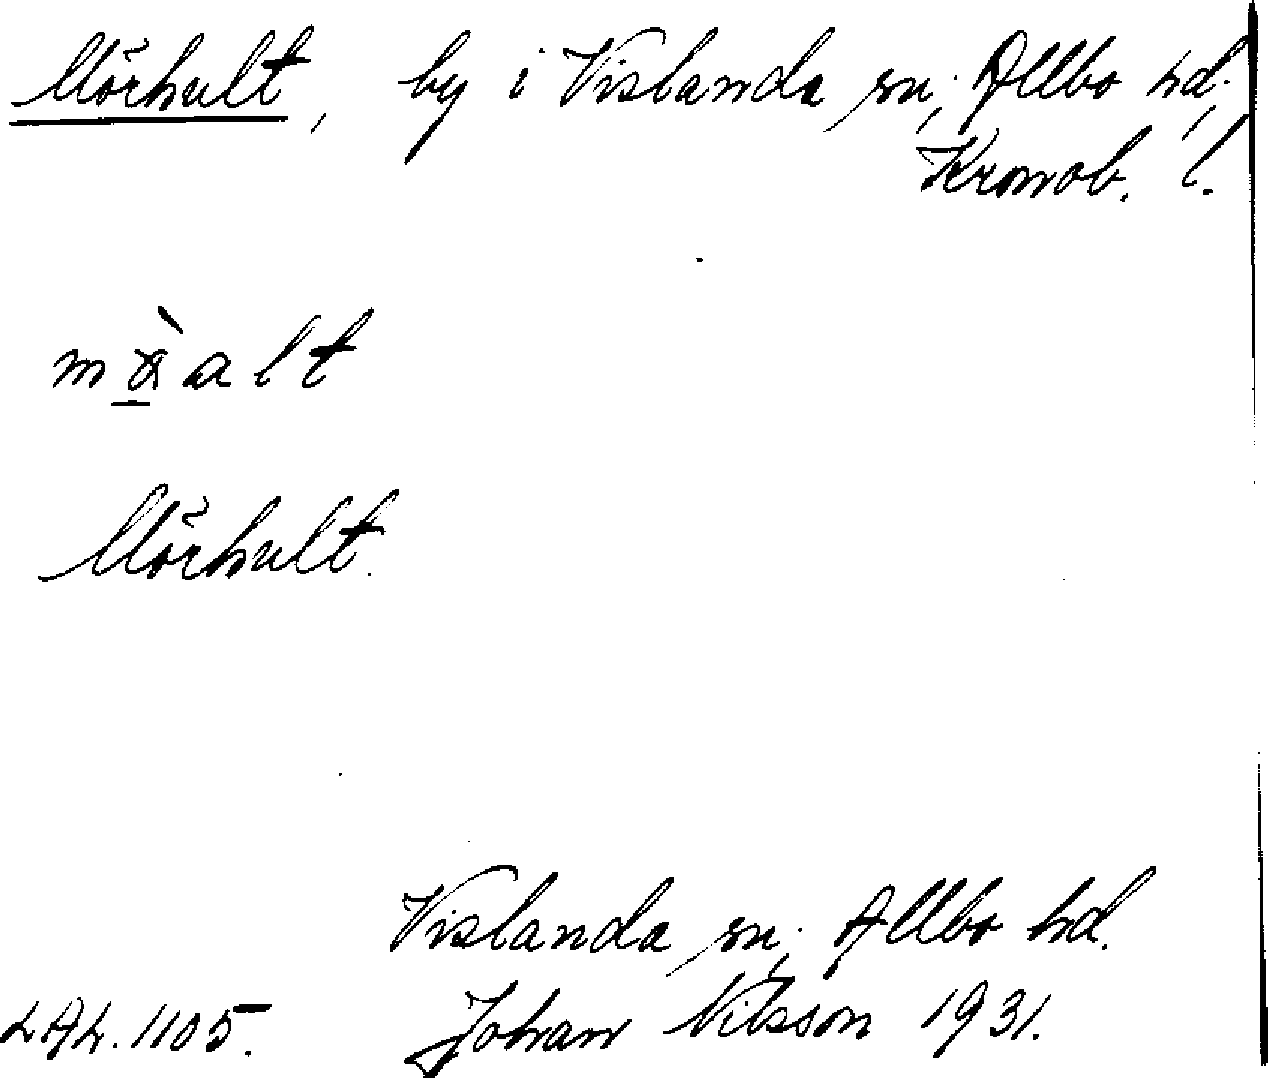 Mörhult, by i Vislanda sn, Allbo hd.,
Kronob. l.
Mörhult.
Vislanda sn, Allbo hd.
LAL. 1105. Johan Nilsson 1931.